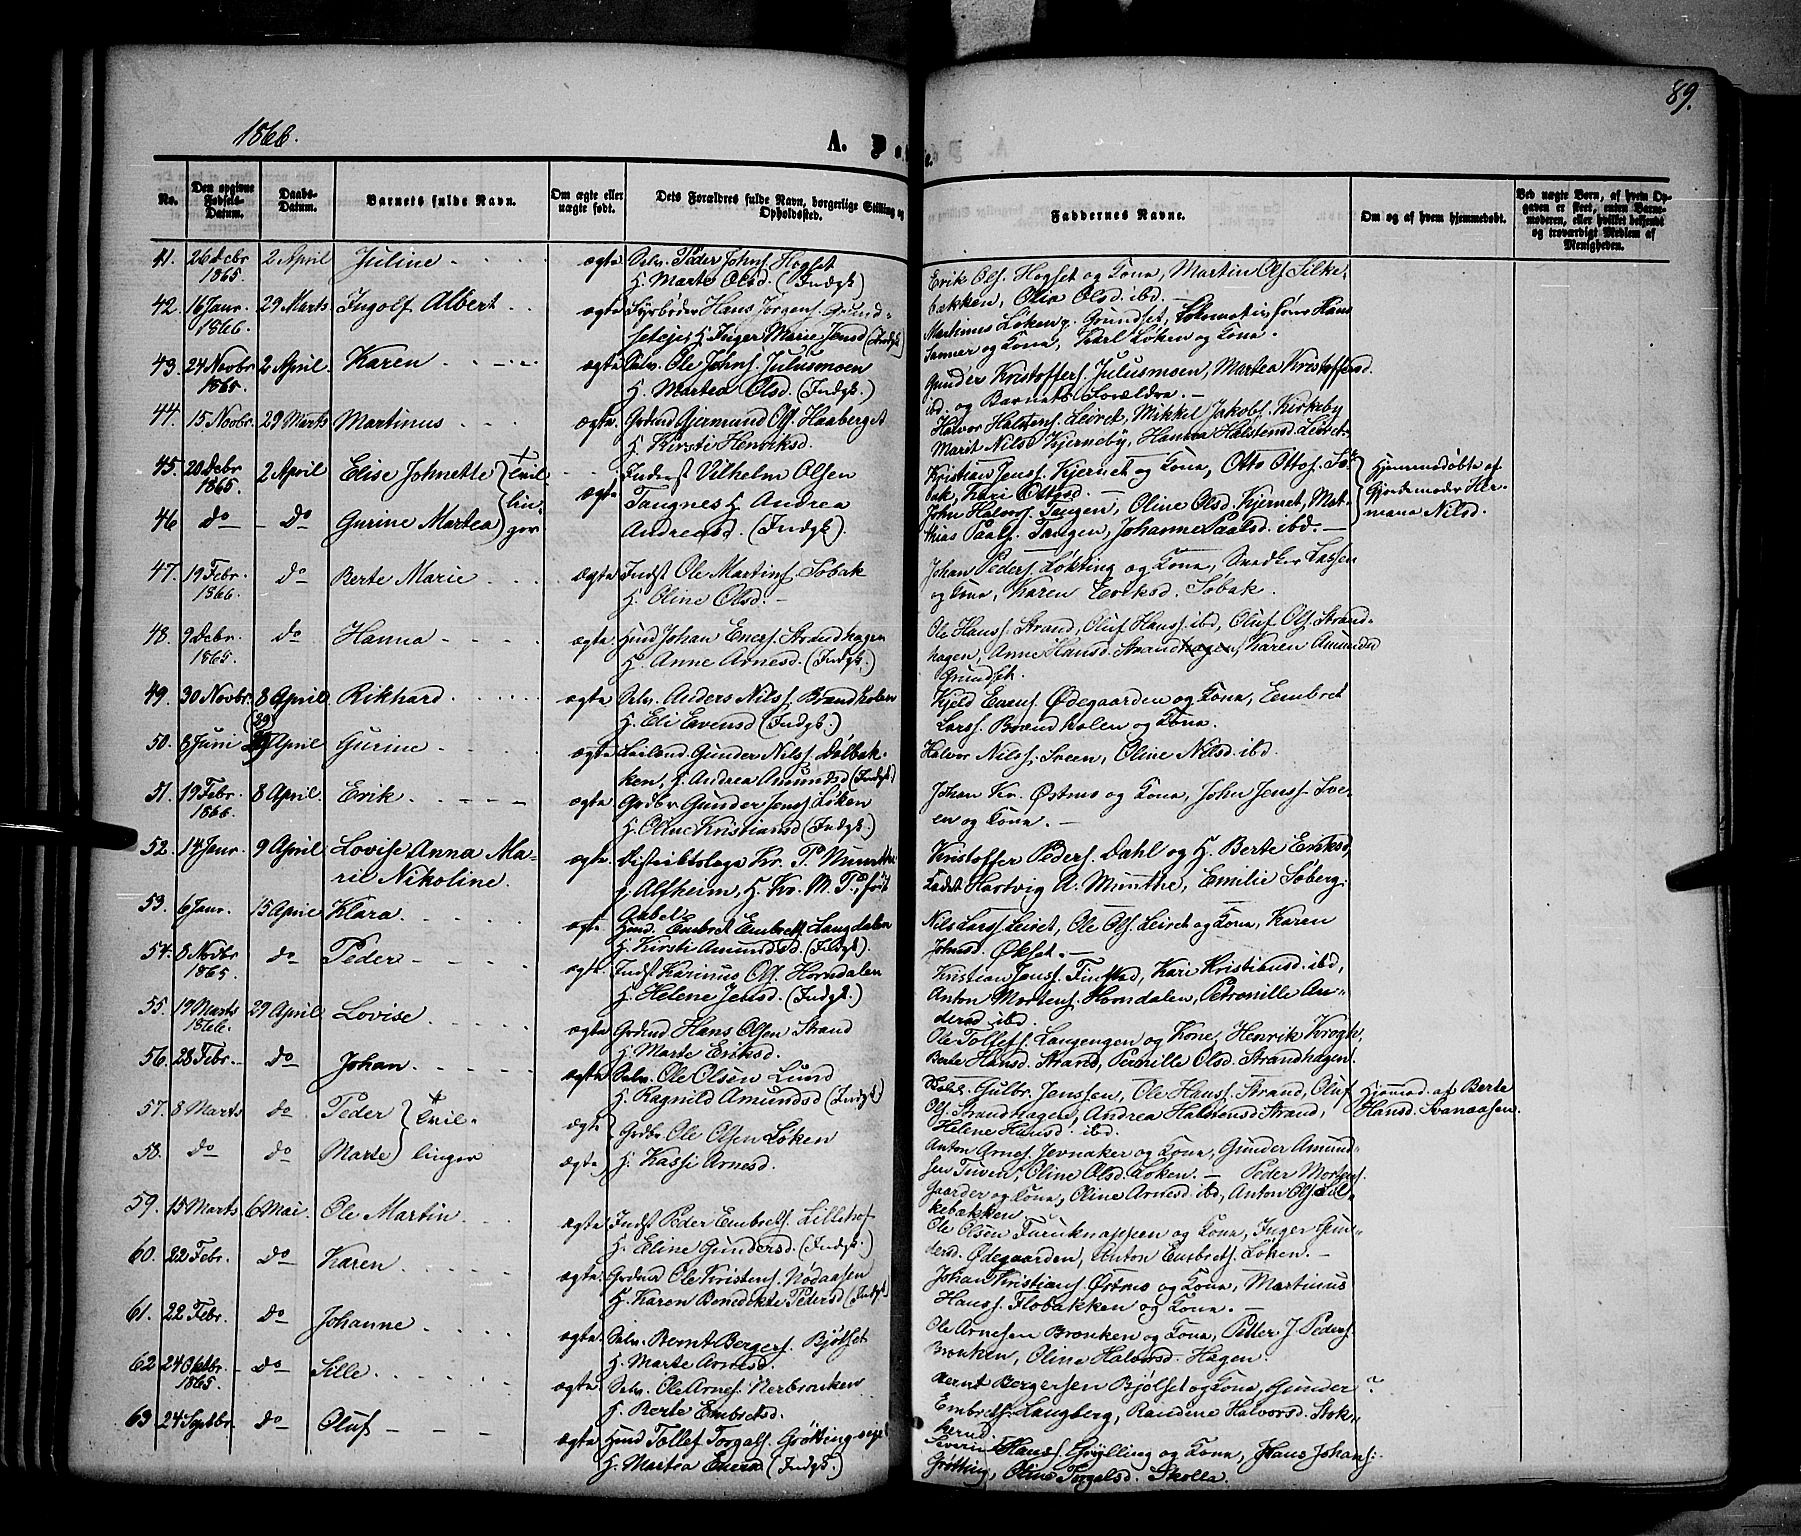 1866.
A. D
e.
89.
No.
Den opgivne Fødsels-Datum.
Daabs-Datum.
Barnets fulde Navn.
Om ægte eller uægte født.
Dets Forældres fulde Navn, borgerlige Stilling og Opholdssted.
Faddernes Navne.
Om og af hvem hjemmedøbt.
Ved uægte Børn, af hvem Opgaven er skeet, enten Barnemoderen, eller hvilket bekjendt og troværdigt Medlem af Menigheden.
41. 26 Debr 1865 2 April Juline ægte Selv. Peder Johns. Hogset
H. Marte Olsd. (Indgk)
Erik Ols. Hogset og Kona, Martin Ols. Silke-
bakken, Olia Olsd. ibd.
42. 16 Janr. 1866. 29 Marts Ingolf Albert ægte Fyrbøder Hans Jørgens. Grund-
setejet H. Inger Marie Jensd (Indgk)
Martinus Løken p. Grundset, Hans
Sanner og Kona, Karl Løken og Kona.
43. 24 Novbr 1865. 2 April Karen ægte Selv. Ole Johns. Julusmoen
H. Martea Olsd. (Indgk.)
Gunder Kristoffers. Julusmoen, Martea Kristoffersd
ibd. og Barnets Forældre.
44. 15 Novbr. 29 Marts Martinus ægte Grdmd Gjermund Ols. Haaberget
H. Kirsti Henriksd.
Halvor Halstens. Leiret, Mikkel Jakobs. Kirkeby
Marit Nilsd Kjerneby, Hanna Halstensd. Leiret
45. 20 Debr 1865. 2 April Elise Johnette Tvil-
46 do do Gurine Martea linger
ægte Inderst Vilhelm Olsen
Tangnes H Andrea
Andreasd. (Indgk.)
Kristian Jens. Kjernet og Kona, Otto Ottos. Sø-
bak, Kari Ottosd.
John Halvors. Tangen, Oline Olsd. Kjernet, Mat-
thias Paals. Tangen, Johanne Paalsd. ibd.
Hjemmedøbte af
Gjordemoder Her-
mana Nilsd.
47. 19 Febr. 1866. do Berte Marie ægte Indst Ole Martins. Søbak
H. Oline Olsd.
Johan Peders. Løkting og Kona, Snedker Lassen
og Kona, Karen Eriksd. Søbak.
48. 9 Debr. 1865. do Hanna ægte Hmd Johan Eners. Strandhagen
H. Anne Arnesd. (Indgk.)
Ole Hans. Strand, Oluf Hans. ibd, Oluf Ols. Strand-
hagen, Anne Hansd. Strand, Karen Amundsd
Grundset.
49. 30 Novbr. 8 April Rikhard ægte Selv. Anders Nils. Brandholen
H. Eli Evensd (Indgk.)
Kjeld Eners. Ødegaarden og Kona, Embret
Lars. Brandholen og Kona.
50. 8 Juni April Gurine ægte Leilend. Gunder Nils. Dølbak-
ken, H. Andrea Amundsd (Indgk)
Halvor Nils. Sveen, Oline Nilsd. ibd.
51. 19 Febr. 1866 8 April. Erik ægte Grdbr Gunder Jens. Løken
H. Oline Kristiansd (Indgk.)
Johan Kr. Østmo og Kona, John Jens. Sve-
en og Kona.
52. 14 Janr. 9 April Lovise Anna Ma-
rie Nikoline. ægte Distriktslæge Kr. P. Munthe
p. Alfheim, H. Kr. M. T.
Gabel
Kristoffer Peders. Dahl og H. Berte Eriksd,
Kadet Hartvig A. Munthe, Emilie Søberg.
53. 6 Janr. 15 April Klara ægte Hmd. Embret Embrets. Langdalen
H. Kirsti Amundsd. (Indgk).
Nils Lars. Leiret, Ole Ols. Leiret og Kona, Karen
Johnsd. Økset.
54. 8 Novbr 1865. do Peder ægte Indst Karinus Ols. Horndalen
H. Helene Jensd. (Indgk.)
Kristian Jens. Finstad, Kari Kristiansd. ibd,
Anton Mortens. Horndalen, Petronille An-
dersd ibd.
55. 19 Marts 1866. 29 April Lovise ægte Grdmd Hans Olsen Strand
H. Marte Eriksd.
Ole Tollefs. Langengen og Kone, Henrik Krogh,
Berte Hansd. Strand, Pernille Olsd. Strandhagen.
56. 28 Febr. do Johan ægte Selv. Ole Olsen Lund
H. Ragnild Amundsd (Indgk)
Gulbr. Jenssen, Ole Hans. Strand, Oluf
Ols. Strandhagen, Andrea Halstensd. Strand,
Helene Hansd. ibd.
Hjemmed. af Berte
Hansd. Svenaasen.
57. 8 Marts do Peder Tvil-
58. do do Marte linger
ægte Grdbr Ole Olsen Løken
ægte H. Kassi Arnesd.
Anton Arnes. Jevnaker og Kona, Gunder Amund-
sen Tuven, Oline Olsd. Løken. — Peder Mortens.
Gaarder og Kona, Oline Arnesd. ibd, Anton Ols. Sil-
kebakken.
59. 15 Marts 6 Mai. Ole Martin ægte Indst Peder Embrets. Lillemo
H. Eline Gundersd. (Indgk.)
Ole Olsen Furuknappen og Kona, Inger Gun-
dersd. Ødegaarden, Anton Embrets. Løken.
60. 22 Febr. do Karen ægte Grdmd Ole Kristens. Nødaasen
H. Karen Benedikte Pedersd (Indgk)
Johan Kristians. Østmo og Kona, Martinus
Hans. Flobakken og Kona.
61. 22 Febr. do Johanne ægte Selv. Bernt Bergers. Bjølset
H. Marte Arnesd.
Ole Arnesen Bronken og Kona, Petter J. Peders.
Bronken, Oline Halvorsd. Hagen.
62 24 Oktbr. 1865. do Sille ægte Selv. Ole Arnes. Nerbronken
H. Berte Embretsd.
Bernt Bergersen Bjølset og Kona, Gunder ?
Embrets. Langberg, Randine Halvorsd. Stok-
kerud.
63 24 Septbr. do Oluf ægte Hmd Tollef Torgals. Grøttingejet
H. Martea Enersd (Indgk.)
Severin Hans. Grylling og Kona, Hans Johans.
Grøtting, Oline Torgalsd. Skolla.